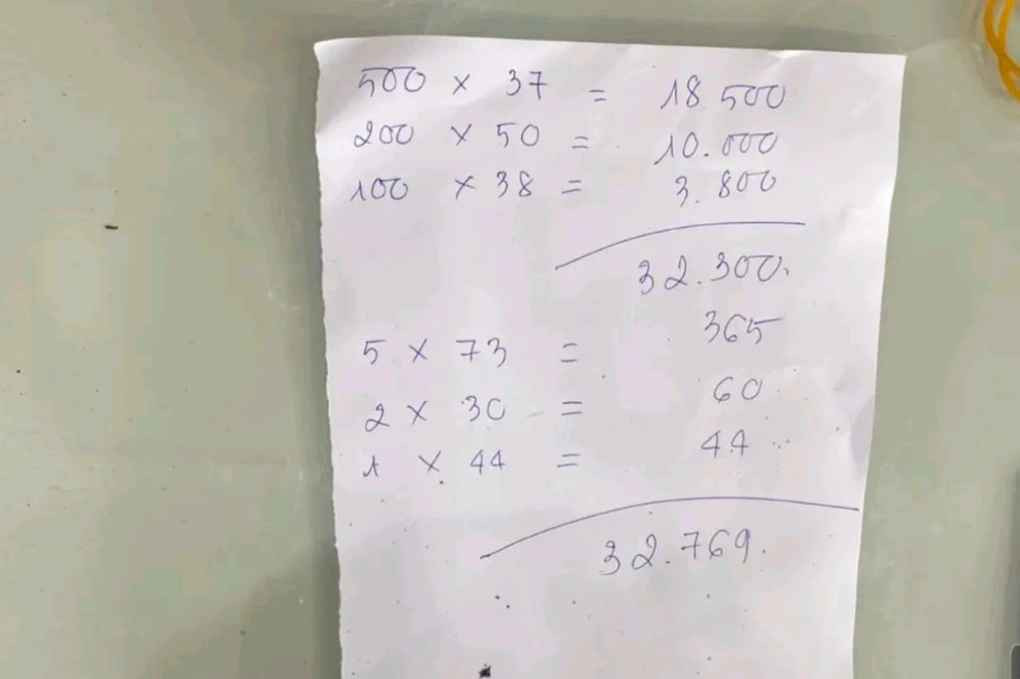 500 x 37 = 18.500
200 x 50 = 10.000
100 x 38 = 3.800
32.300.
5 x 73 = 365
2 x 30 = 60
1 x 44 = 44
32.769.